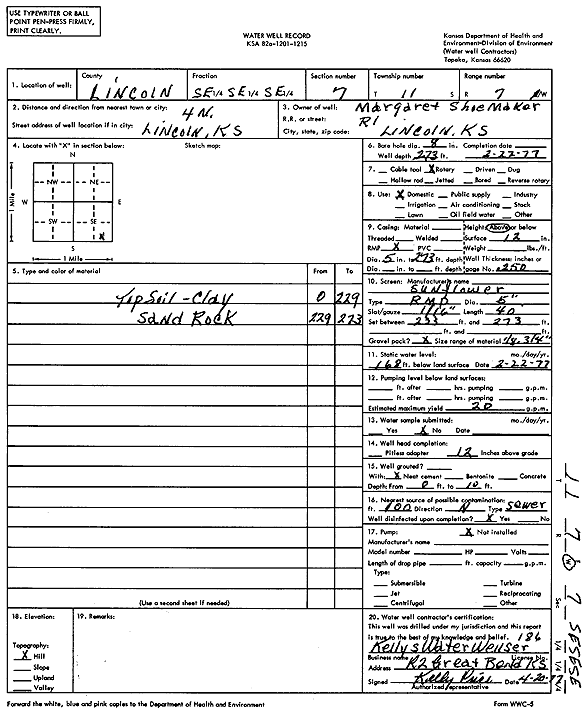 USE TYPEWRITER OR BALL
POINT PEN-PRESS FIRMLY,
PRINT CLEARLY.
WATER WELL RECORD
KSA 82a-1201-1215
Kansas Department of Health and
Environment-Division of Environment
(Water well Contractors)
Topeka, Kansas 66620
1. Location of well: County LINCOLN Fraction SE 1/4 SE 1/4 SE 1/4 Section number 7 Township number T 11 S Range number R 7 W
2. Distance and direction from nearest town or city: 4 N.
Street address of well location if in city: LINCOLN, KS
3. Owner of well: Margaret ShoeMaker
R.R. or street: R1
City, state, zip code: LINCOLN, KS
4. Locate with "X" in section below: Sketch map:
N
NW NE
W E
SW SE
X
S
1 Mile
1 Mile
5. Type and color of material From To
Top Soil - Clay 0 229
Sand Rock 229 273
(Use a second sheet if needed)
6. Bore hole dia. 8 in. Completion date
Well depth 273 ft. 2-22-77
7. Cable tool X Rotary Driven Dug
Hollow rod Jetted Bored Reverse rotary
8. Use: X Domestic Public supply Industry
Irrigation Air conditioning Stock
Lawn Oil field water Other
9. Casing: Material Height: Above or below
Threaded Welded Surface 12 in.
RMP X PVC Weight lbs./ft.
Dia. 5 in. to 273 ft. depth Wall Thickness: inches or
Dia. in. to ft. depth gage No. .250
10. Screen: Manufacturer's name
Sunflower
Type RMP Dia. 5"
Slot/gauze 1/16" Length 40
Set between 233 ft. and 273 ft.
ft. and ft.
Gravel pack? X Size range of material 1/8-3/4"
11. Static water level: mo./day/yr.
168 ft. below land surface Date 2-22-77
12. Pumping level below land surfaces:
ft. after hrs. pumping g.p.m.
ft. after hrs. pumping g.p.m.
Estimated maximum yield 20 g.p.m.
13. Water sample submitted: mo./day/yr.
Yes X No Date
14. Well head completion:
Pitless adapter 12 Inches above grade
15. Well grouted?
With: X Neat cement Bentonite Concrete
Depth: From 0 ft. to 10 ft.
16. Nearest source of possible contamination:
ft. 100 Direction N Type Sewer
Well disinfected upon completion? X Yes No
17. Pump: X Not installed
Manufacturer's name
Model number HP Volts
Length of drop pipe ft. capacity g.p.m.
Type:
Submersible Turbine
Jet Reciprocating
Centrifugal Other
18. Elevation:
Topography:
X Hill
Slope
Upland
Valley
19. Remarks:
20. Water well contractor's certification:
This well was drilled under my jurisdiction and this report
is true to the best of my knowledge and belief. 186
Kelly's Water Well Ser
Business name License No.
Address R2 Great Bend KS
Signed Kelly Price Date 4-20-77
Authorized representative
T 11 R 7 W Sec 7 SE SE SE 1/4 1/4 1/4
Forward the white, blue and pink copies to the Department of Health and Environment
Form WWC-5